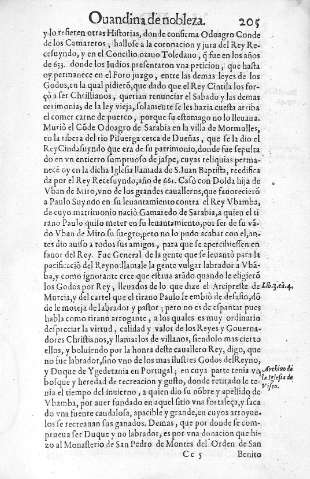 Ouandina de nobleza. 205
y lo refieren otras Historias, donde confirma Odoagro Conde
de los Camareros; hallose a la coronacion y jura del Rey Re-
cesuyndo, y en el Concilio octauo Toledano, q̃ fue en los años de
653. donde los Iudios presentaron vna peticion, que hasta
oy permanece en el Foro juzgo, entre las demas leyes de los
Godos, en la qual pidierõ, que dado que el Rey Cintila los for-
çò a ser Christianos, querian renunciar el Sabado y las demas
cerimonias, de la ley vieja, solamente se les hazia cuesta arriba
el comer carne de puerco, porque su estomago no lo lleuaua.
Muriò el Cõde Odoagro de Sarabia en la villa de Mormulles,
en la ribera del rio Pisuerga cerca de Dueñas, que se la dio el
Rey Cindasuyndo que era de su patrimonio, donde fue sepulta
do en vn entierro sumptuoso de jaspe, cuyas reliquias perma-
necẽ oy en la dicha Iglesia llamada de S. Iuan Baptista, reedifica
da por el Rey Recesuyndo, año de 661. Casò con Dolda hija de
Vban de Miro, vno de los grandes caualleros, que fauorecierõ
a Paulo Suyndo en su leuantamiento contra el Rey Vbamba,
de cuyo matrimonio naciò Gamaredo de Sarabia, a quien el ti
rano Paulo quiso meter en su leuantamiento, por ser de su vã-
do Vban de Miro su suegro, pero no lo pudo acabar con el, an-
tes dio auiso a todos sus amigos, para que se apercibiessen en
fauor del Rey. Fue General de la gente que se leuantò para la
pacificaciõ del Reyno: llamale la gente vulgar labrador a Vbã-
ba, y como ignorante cree que estaua arãdo quando le eligierõ
los Godos por Rey, lleuados de lo que dize el Arcipreste de
Lib. 3. ca. 4.
Murcia, y del cartel que el tirano Paulo le embiò de desafio, dõ-
de le moteja de labrador y pastor; pero no es de espantar pues
habla como tirano arrogante, a los quales es muy ordinario
despreciar la virtud, calidad y valor de los Reyes y Gouerna-
dores Christianos, y llamalos de villanos, siendo mas cierto
ellos, y boluiendo por la honra deste cauallero Rey, digo, que
no fue labrador, sino vno de los mas ilustres Godos del Reyno,
y Duque de Ygedetania en Portugal; en cuya parte tenia vn
Archiuo de
la Iglesia de
Viseo.
bosque y heredad de recreacion y gusto, donde retirado le te-
nia el tiempo del inuierno, a quien dio su nõbre y apellido de
Vbamba, por auer fundado en aquel sitio vna fortaleça, y saca
do vna fuente caudalosa, apacible y grande, en cuyos arroyos
los se recreauan sus ganados. Demas, que por donde se com-
prueua ser Duque y no labrador, es por vna donacion que hi-
zo al Monasterio de San Pedro de Montes del Orden de San
Cc 5 Benito